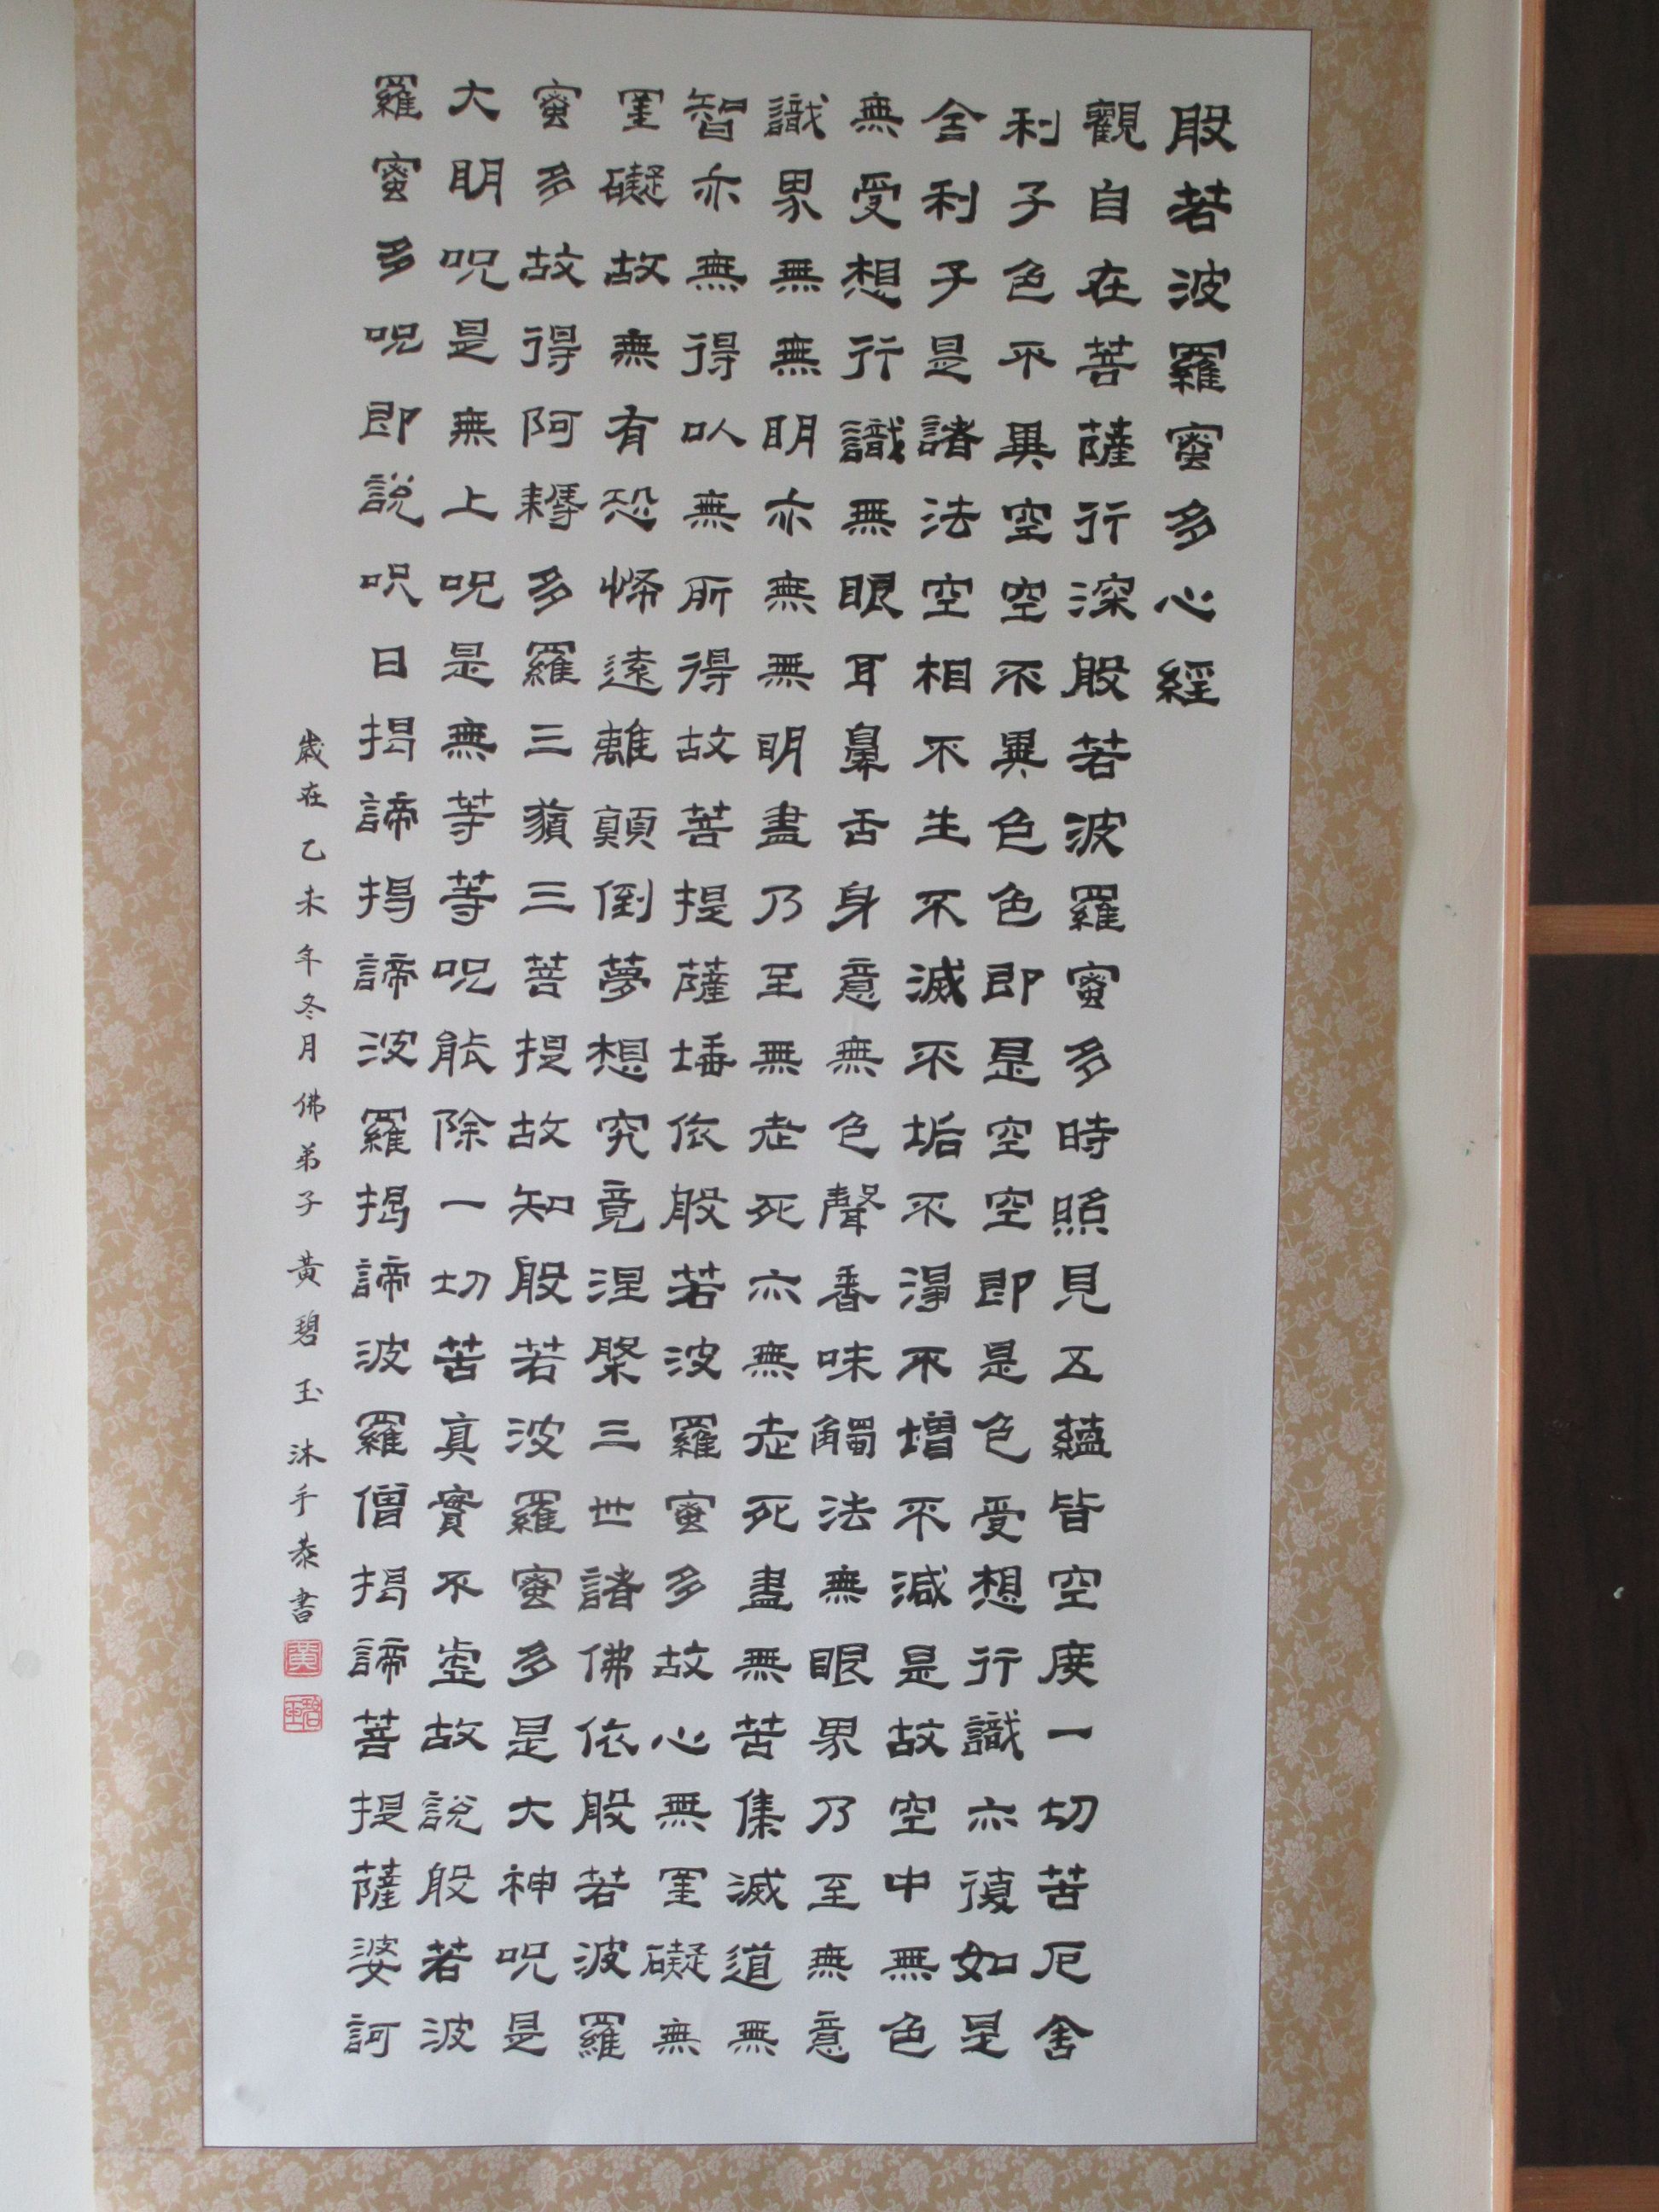 般若波羅蜜多心經
觀自在菩薩行深般若波羅蜜多時照見五蘊皆空度一切苦厄舍
利子色不異空空不異色色即是空空即是色受想行識亦復如是
舍利子是諸法空相不生不滅不垢不淨不增不減是故空中無色
無受想行識無眼耳鼻舌身意無色聲香味觸法無眼界乃至無意
識界無無明亦無無明盡乃至無老死亦無老死盡無苦集滅道無
智亦無得以無所得故菩提薩埵依般若波羅蜜多故心無罣礙無
罣礙故無有恐怖遠離顛倒夢想究竟涅槃三世諸佛依般若波羅
蜜多故得阿耨多羅三藐三菩提故知般若波羅蜜多是大神咒是
大明咒是無上咒是無等等咒能除一切苦真實不虛故說般若波
羅蜜多咒即說咒曰揭諦揭諦波羅揭諦波羅僧揭諦菩提薩婆訶
歲在乙未年冬月佛弟子黃碧玉沐手恭書
黃
碧玉